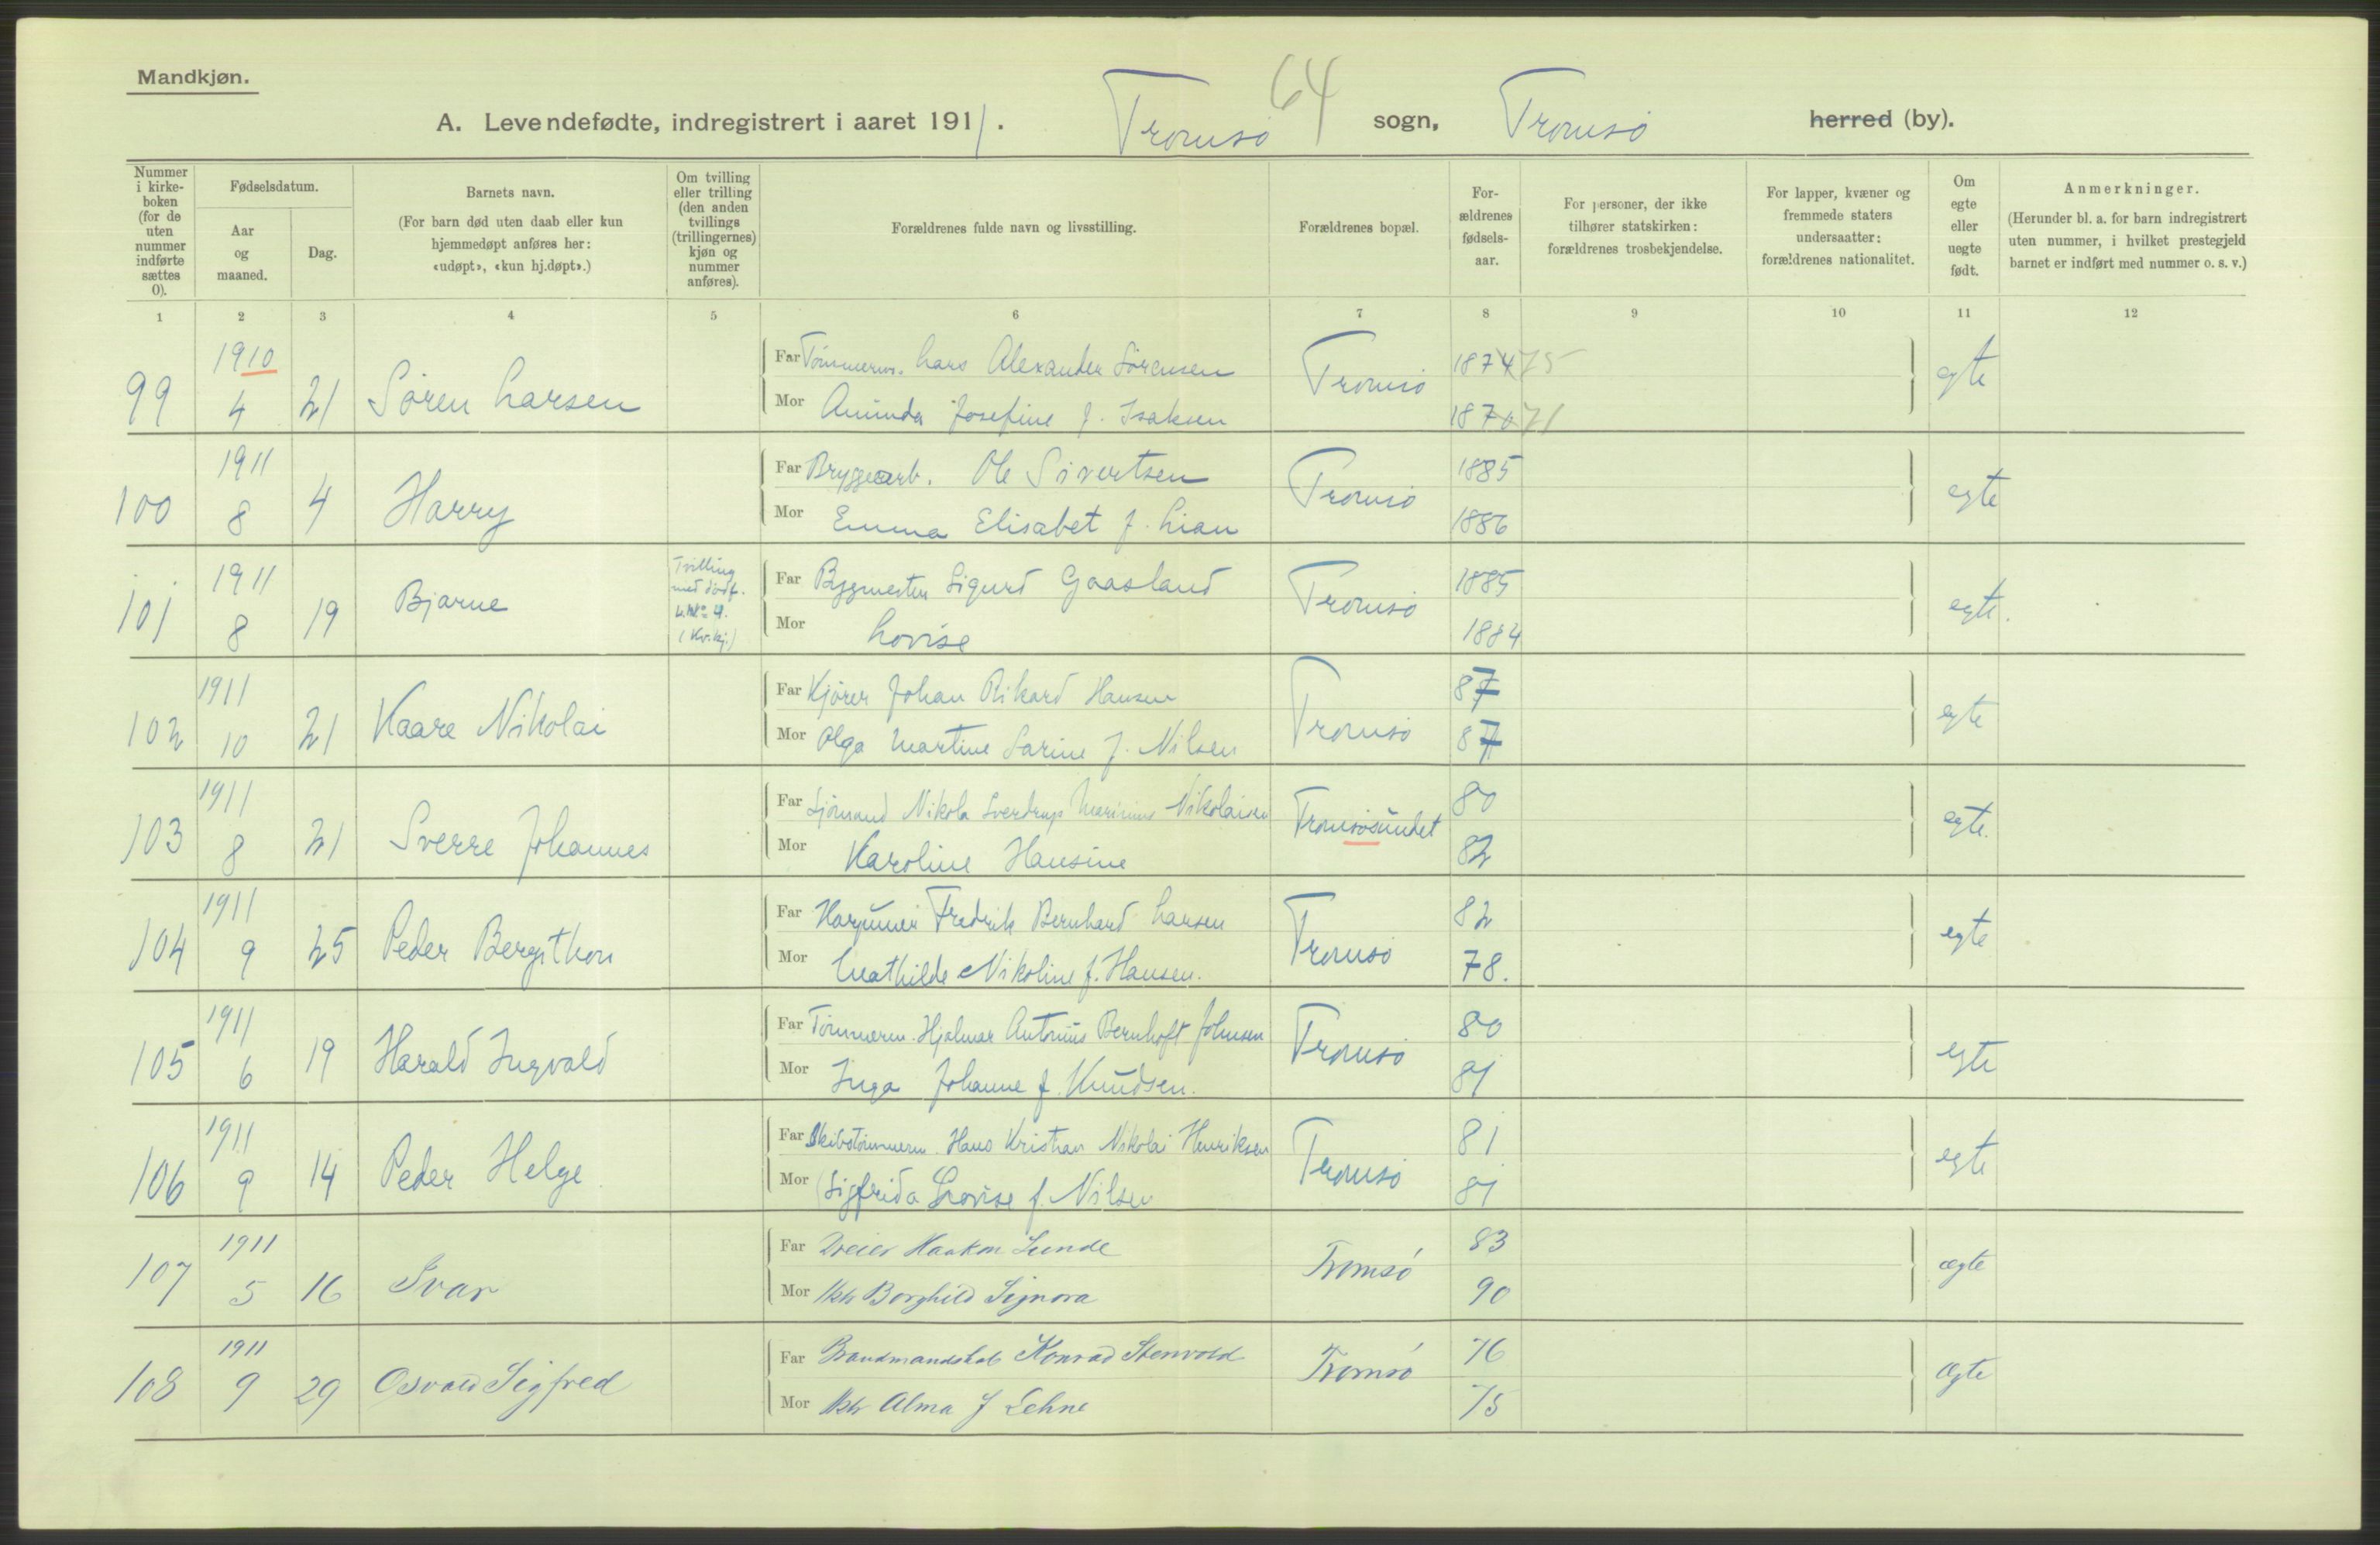 Mandkjøn.
64
A. Levendefødte, indregistrert i aaret 1911. Tromsø sogn, Tromsø herred (by).
Nummer i kirke-boken (for de uten nummer indførte sættes 0).
Fødselsdatum.
Aar og maaned.
Dag.
Barnets navn.
(For barn død uten daab eller kun hjemmedøpt anføres her: «udøpt», «kun hj.døpt».)
Om tvilling eller trilling (den anden tvillings (trillingernes) kjøn og nummer anføres).
Forældrenes fulde navn og livsstilling.
Forældrenes bopæl.
For-ældrenes fødsels-aar.
For personer, der ikke tilhører statskirken: forældrenes trosbekjendelse.
For lapper, kvæner og fremmede staters undersaatter: forældrenes nationalitet.
Om egte eller uegte født.
Anmerkninger.
(Herunder bl. a. for barn indregistrert uten nummer, i hvilket prestegjeld barnet er indført med nummer o. s. v.)
1 2 3 4 5 6 7 8 9 10 11 12
1910
99 4 21 Sören Larsen
Far Tömmerm. Lars Alexander Sörensen Tromsö 1874 75 egte
Mor Aminda Josefine f. Isaksen 1870 71
1911
100 8 4 Harry
Far Bryggearb. Ole Sivertsen Tromsö 1885 egte
Mor Emma Elisabet f. Lian 1886
1911
101 8 19 Bjarne
Tvilling med dödf. L.No 4. (Kv.kj.)
Far Byggmester Sigurd Gaasland Tromsö 1885 egte.
Mor Lovise 1884
1911
102 10 21 Kaare Nikolai
Far Kjörer Johan Rikard Hansen Tromsö 87 egte
Mor Olga Martine Sarine f. Nilsen 87
1911
103 8 21 Sverre Johannes
Far Sjömand Nikola Sverdrup Marinius Nikolaisen Tromsösundet 80 egte.
Mor Karoline Hansine 82
1911
104 9 25 Peder Bergithon
Far Fredrik Bernhard Larsen Tromsö 82 egte
Mor Mathilde Nikoline f. Hansen. 78.
1911
105 6 19 Harald Ingvald
Far Tömmerm. Hjalmar Antonius Bernhoft Johnsen Tromsö 80 egte
Mor Inga Johanne f. Knudsen. 81
1911
106 9 14 Peder Helge
Far Skibstömmerm. Hans Kristian Nikolai Henriksen Tromsö 81 egte
Mor Sigfrida Lovise f. Nilsen 81
1911
107 5 16 Ivar
Far Dreier Haakon Lunde Tromsö 83 ægte
Mor Hst Borghild Signora 90
1911
108 9 29 Osvald Sigfred
Far Brandmandskab Konrad Stenvold Tromsö 76 Ægte
Mor Hst Alma f Lehne 75